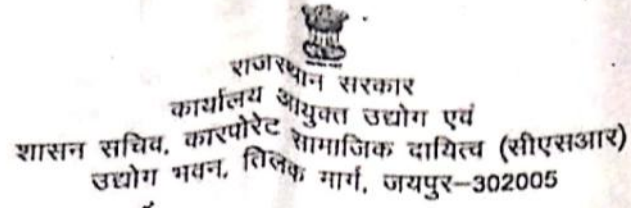 राजस्थान सरकार
कार्यालय आयुक्त उद्योग एवं
शासन सचिव, कारपोरेट सामाजिक दायित्व (सीएसआर)
उद्योग भवन, तिलक मार्ग, जयपुर–302005